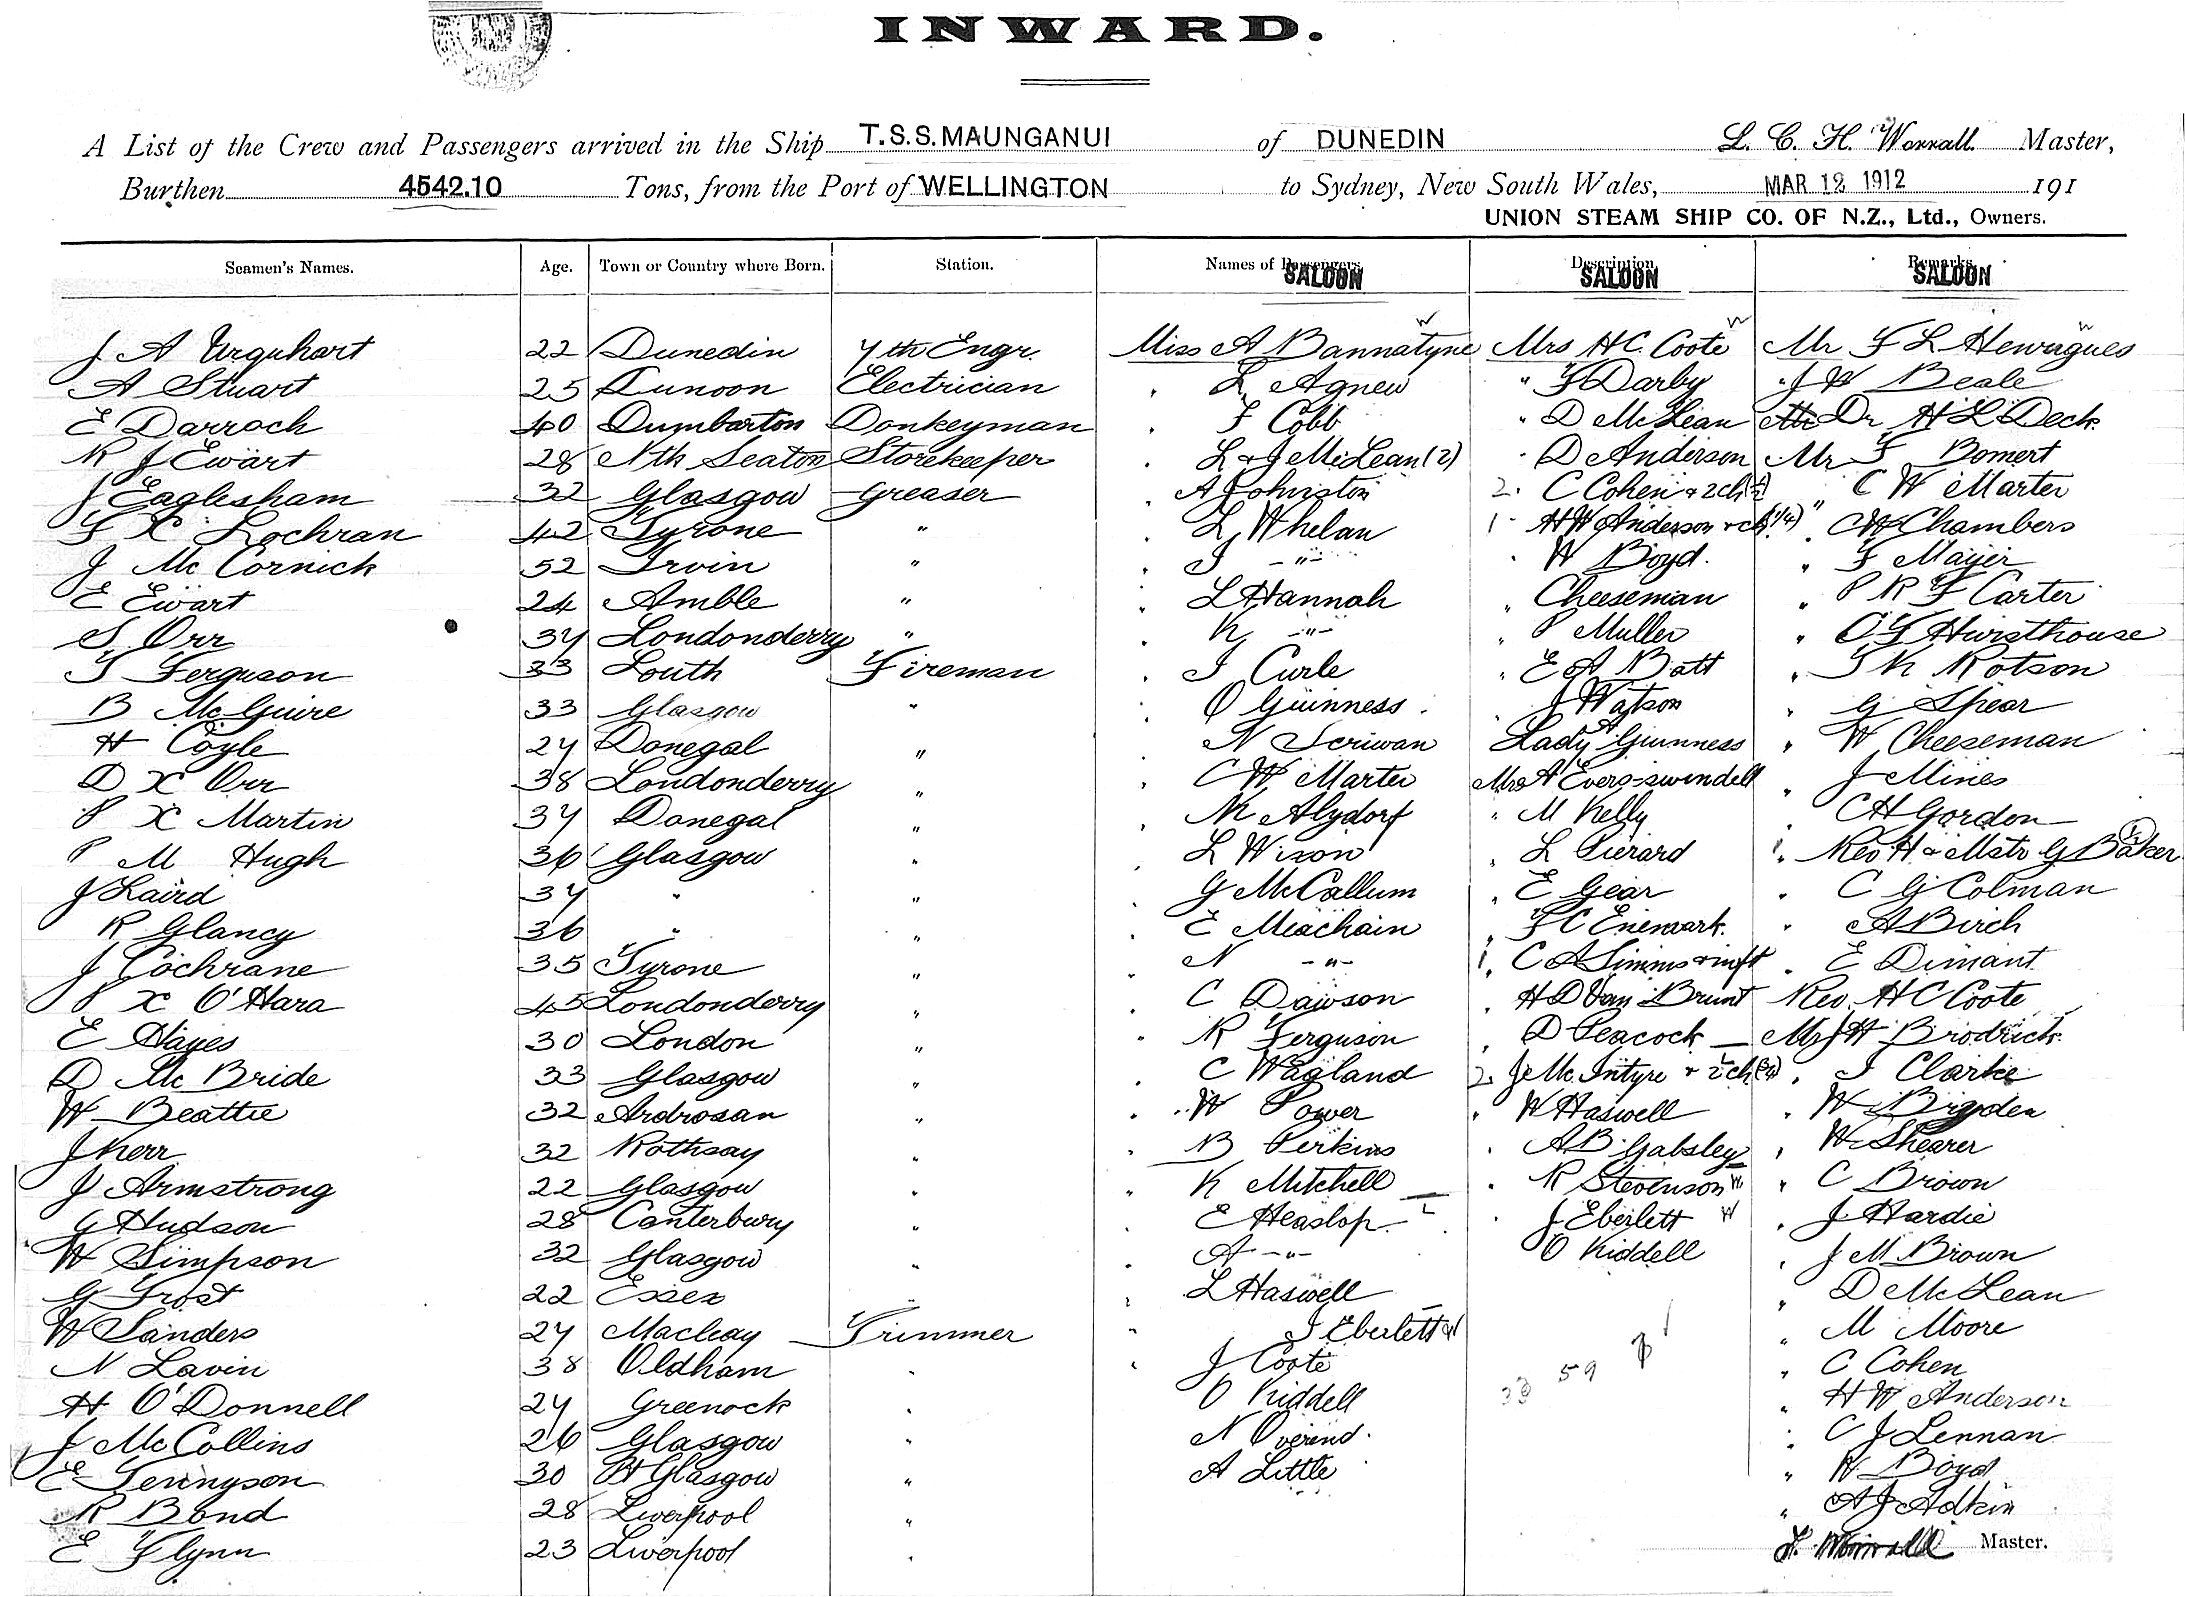 INWARD.
A List of the Crew and Passengers arrived in the Ship T.S.S. MAUNGANUI of DUNEDIN L. C. H. Worrall Master,
Burthen 4542.10 Tons, from the Port of WELLINGTON to Sydney, New South Wales, MAR 12 1912 191
UNION STEAM SHIP CO. OF N.Z., Ltd., Owners.
Seamen's Names. Age. Town or Country where Born. Station. Names of Passengers SALOON Description SALOON Remarks SALOON
J A Urquhart 22 Dunedin 7th Engr. Miss A Bannatyne Mrs H C. Coote Mr F L
A Stuart 25 Dunoon Electrician " L Agnew " F Darby " J W Beale
E Darroch 40 Dumbarton Donkeyman " F Cobb " D McLean Dr H L Deck
R J Ewart 28 Nth Seaton Storekeeper " L & J McLean (2) " D Anderson Mr F Bomert
J Eaglesham 32 Glasgow Greaser " A Johnston 2 " C Cohen & 2 ch " C W Marter
F X Lochran 42 Tyrone " " L Whelan 1 " H W Anderson & ch " C W Chambers
J McCornick 52 Irvin " " I -"- " W Boyd. " F Mayer
E Ewart 24 Amble " " L Hannah " Cheeseman " P R F Carter
S Orr 37 Londonderry " " K -"- " P Muller " C F Hursthouse
T Ferguson 33 Louth Fireman " I Curle " E A Batt " T K Rotson
B McGuire 33 Glasgow " " O Guinness " J Watson " G Spear
H Coyle 27 Donegal " " N Scriwan Lady Guinness " W Cheeseman
D X Orr 38 Londonderry " " C W Marter Mrs A Evers-swindell " J Mines
P X Martin 37 Donegal " " K Alydorf " M Kelly " C H Gordon
P M Hugh 36 Glasgow " " L Wixon " L Pierard 1 " Rev H & Mstr G Baker
J Laird 37 " " " G McCallum " E Gear " C G Colman
R Glancy 36 " " " E Meachain " F C Enemark. " A Birch
J Cochrane 35 Tyrone " " N -"- 1 " C A Simms & inft " E Dimant
P X O'Hara 45 Londonderry " " C Dawson " H D Van Brunt Rev. H C Coote
E Hayes 30 London " " R Ferguson " D Peacock Mr J H Brodrick
D McBride 33 Glasgow " " C Wagland 2 " J McIntyre & 2 ch " I Clarke
W Beattie 32 Ardrosan " " W Power " W Haswell " W Bigden
J Kerr 32 Rothsay " " B Perkins " A B Gabsley " W Shearer
J Armstrong 22 Glasgow " " K Mitchell " R Stevenson W " C Brown
G Hudson 28 Canterbury " " E Heaslop " J Eberlett W " J Hardie
W Simpson 32 Glasgow " " A -"- O Kiddell " J M Brown
G Frost 22 Essex " " L Haswell " D McLean
W Sanders 27 Macleay Trimmer " I Eberlett W " M Moore
N Lavin 38 Oldham " " J Coote 33 59 " C Cohen
H O'Donnell 27 Greenock " O Kiddell " H W Anderson
J McCollins 26 Glasgow " N Overend " C J Lennan
E Tennyson 30 Pt Glasgow " A Little " W Boyd
R Bond 28 Liverpool " " A J Adkin
E Flynn 23 Liverpool " Master.